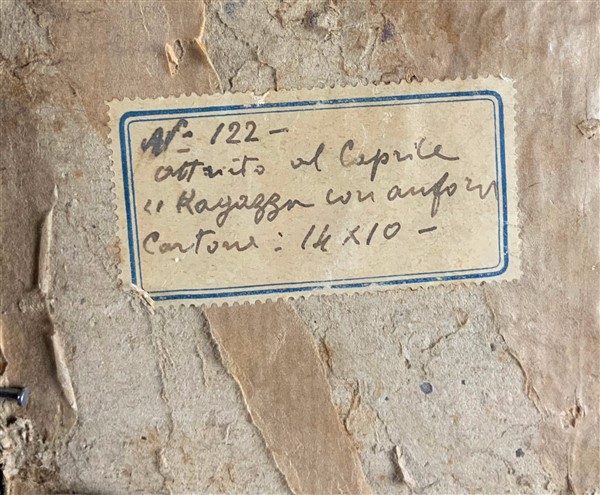 Nº 122 –
attrito al Caprile
" Ragazza con anfora
Cartone : 14 x 10 –